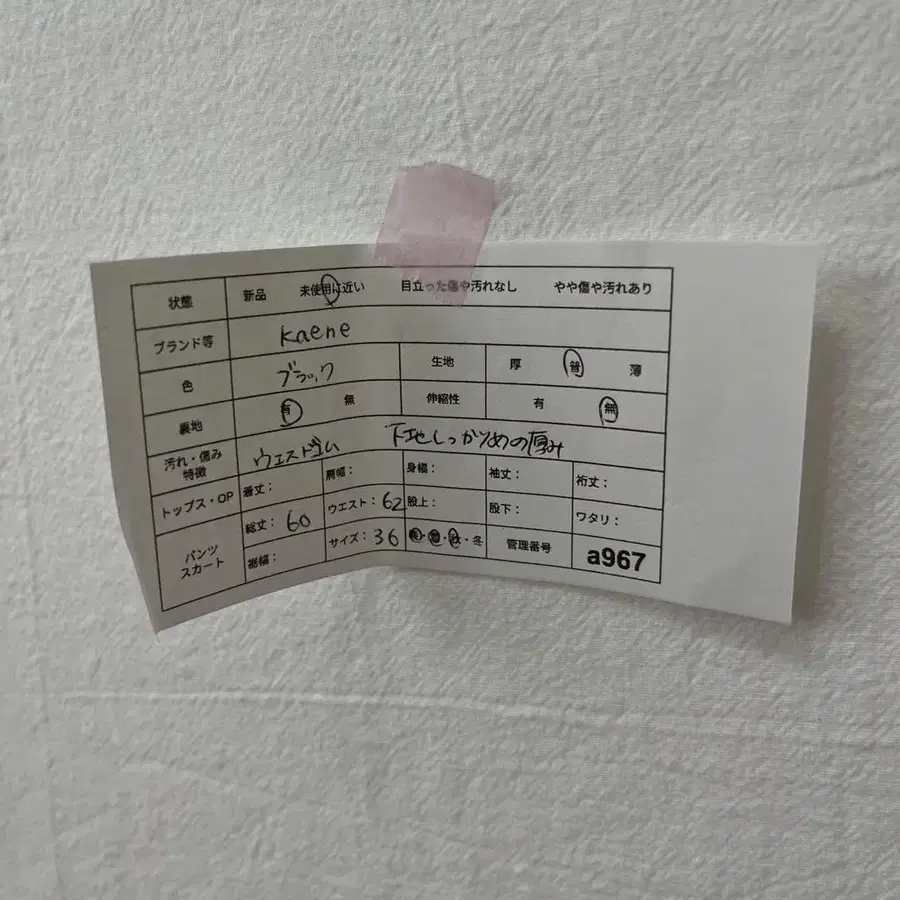 状態 新品 未使用に近い 目立った傷や汚れなし やや傷や汚れあり
ブランド等 kaene
色 ブラック 生地 厚 普 薄
裏地 有 無 伸縮性 有 無
汚れ・傷み 特徴 ウエストゴム 下地しっかりめの厚み
トップス・OP 着丈: 肩幅: 身幅: 袖丈: 裄丈:
パンツ スカート 総丈: 60 ウエスト: 62 股上: 股下: ワタリ:
裾幅: サイズ: 36 春・夏・秋・冬 管理番号 a967